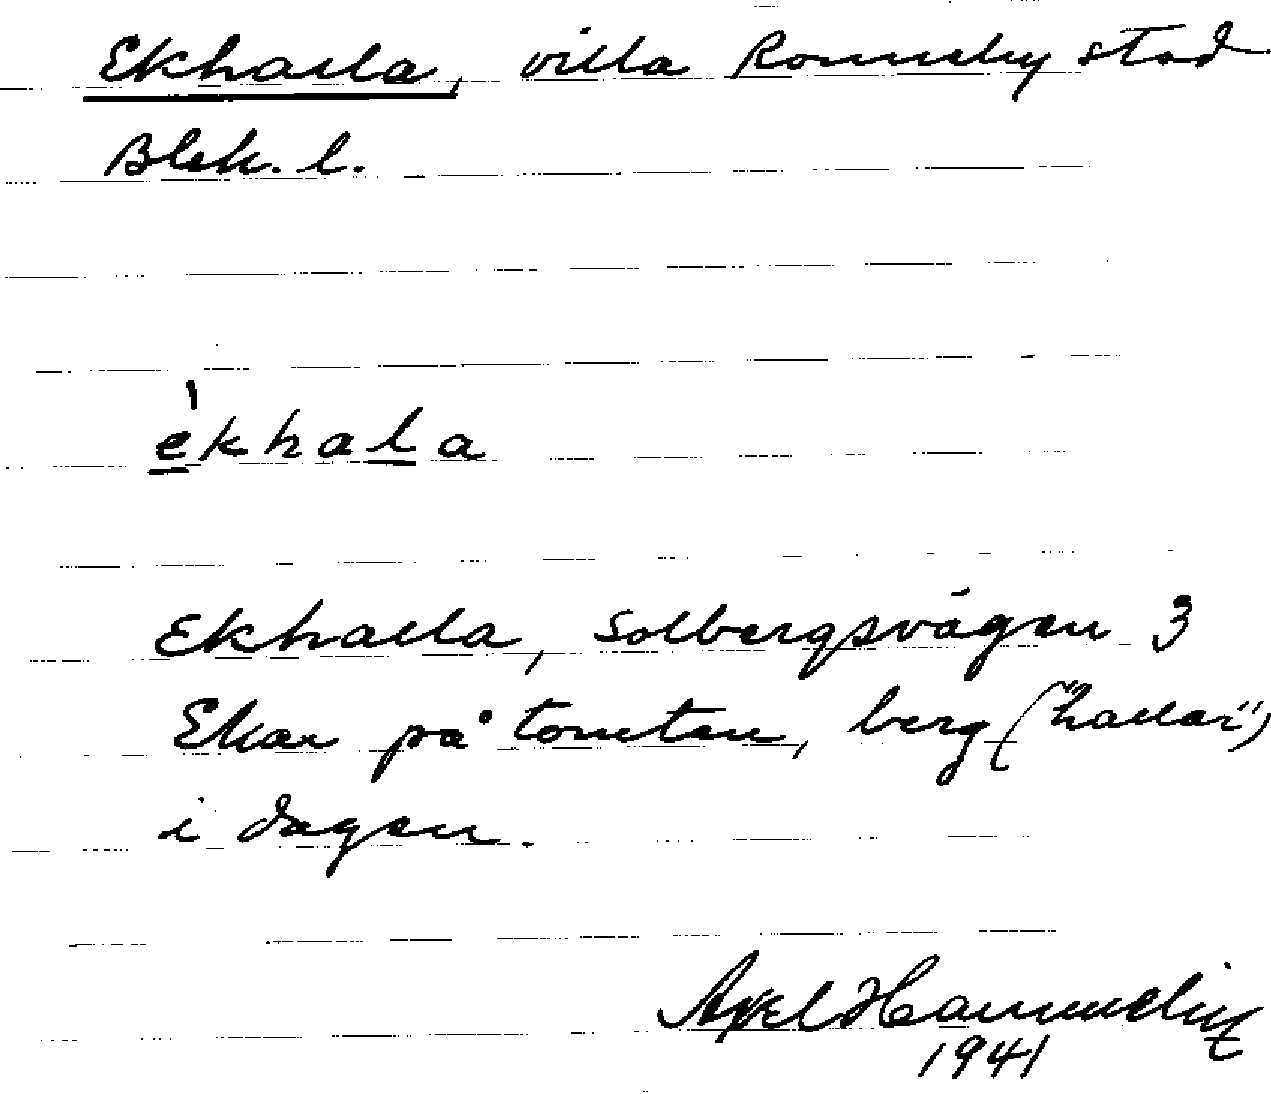 Ekhalla, villa Ronneby stad
Blek. l.
ékhala
Ekhalla, Solbergsvägen 3
Ekar på tomten, berg ("hallar")
i dagen.
Axel
1941